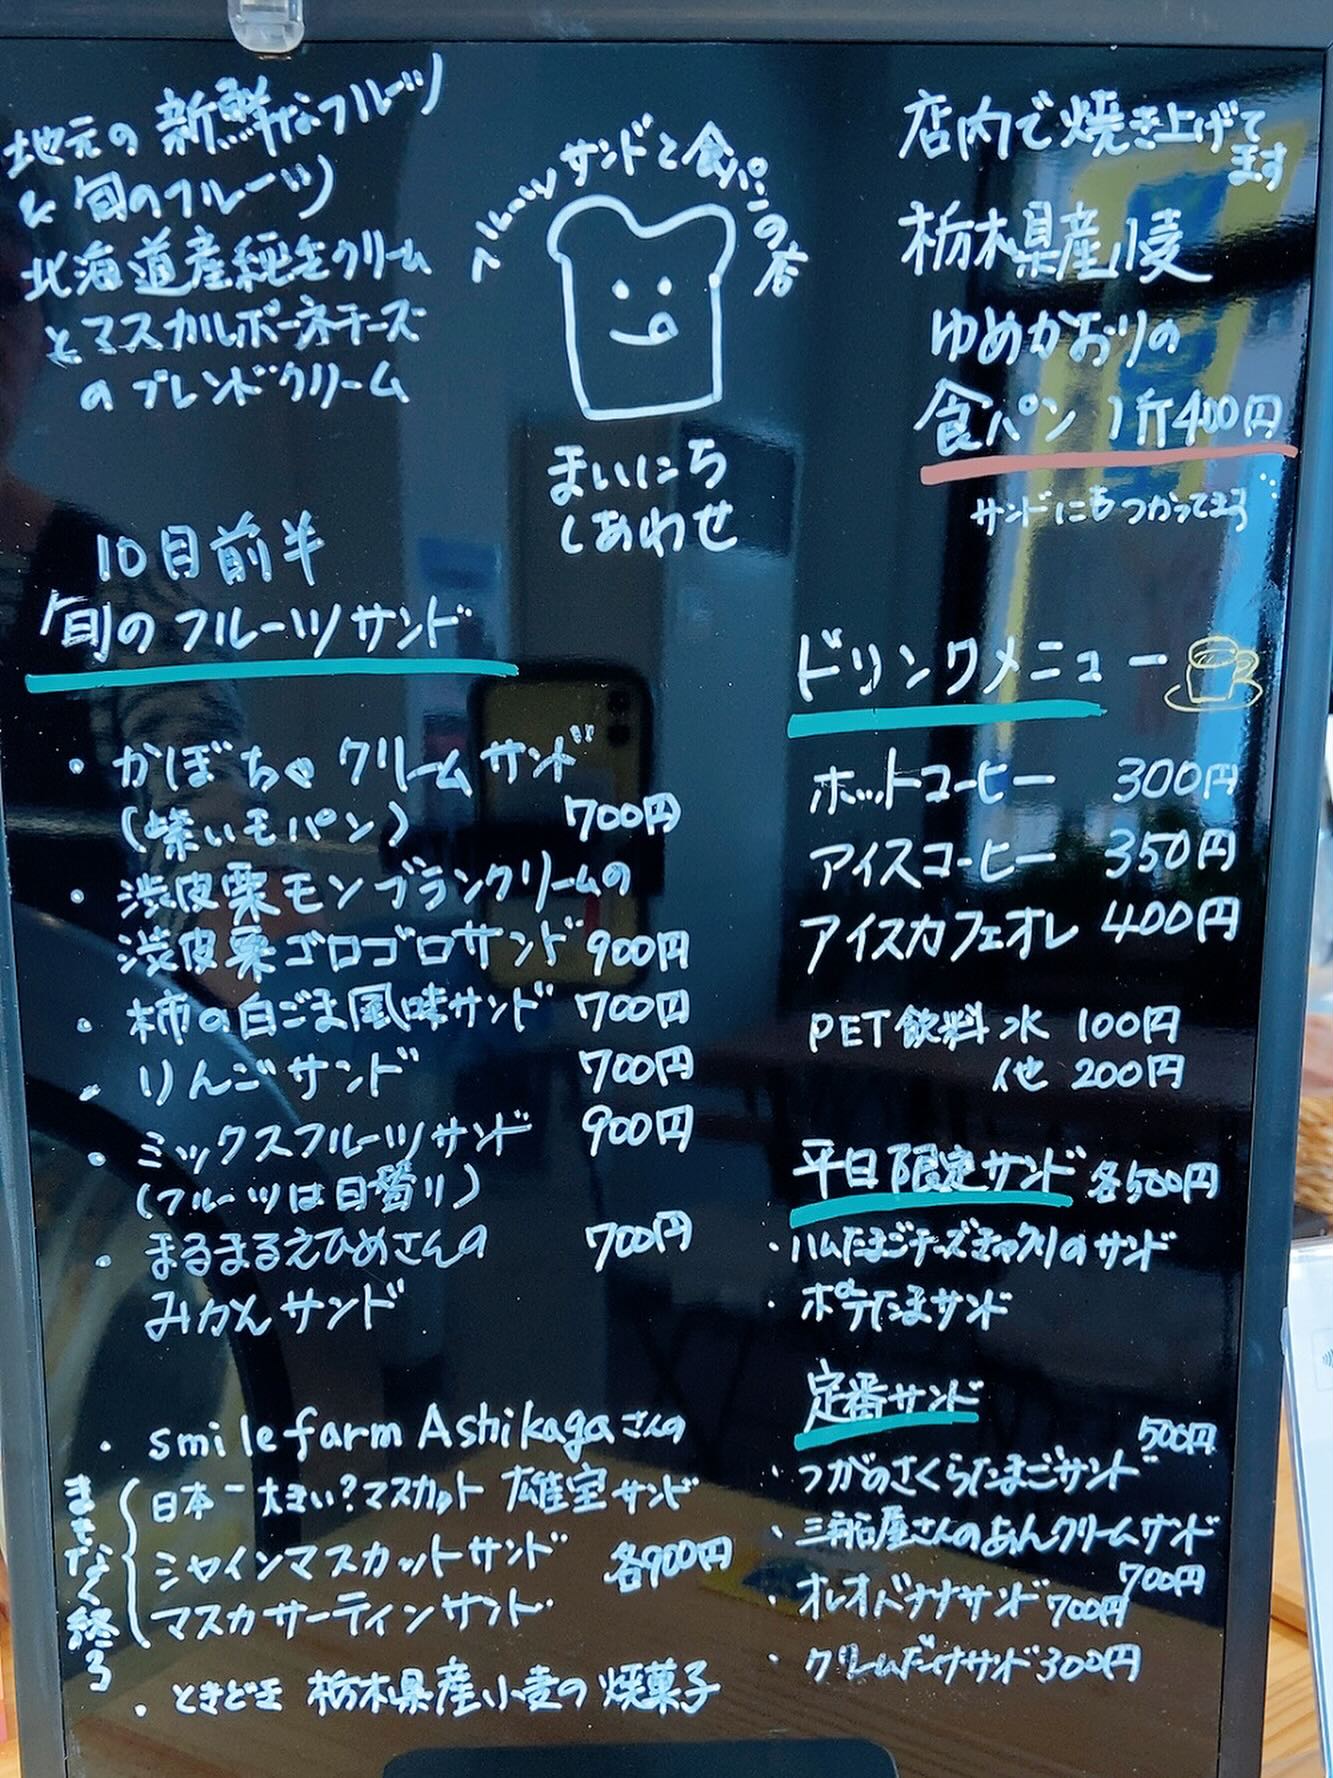 地元の新鮮なフルーツ
と旬のフルーツ
北海道産純生クリーム
とマスカルポーネチーズ
のブレンドクリーム
フルーツサンドと食パンの店
まいにち
しあわせ
店内で焼き上げて
ます
栃木県産小麦
ゆめかおりの
食パン 1斤400円
サンドにもつかってます
10月前半
旬のフルーツサンド
・かぼちゃクリームサンド
(紫いもパン) 700円
・渋皮栗モンブランクリームの
渋皮栗ゴロゴロサンド 900円
・柿の白ごま風味サンド 700円
・りんごサンド 700円
・ミックスフルーツサンド 900円
(フルーツは日替り)
・まるまるえひめさんの 700円
みかんサンド
・smile farm Ashikagaさんの
日本一大きい?マスカット 雄宝サンド
シャインマスカットサンド 各900円
マスカサーティンサンド
まもなく終了
・ときどき 栃木県産小麦の焼菓子
ドリンクメニュー
ホットコーヒー 300円
アイスコーヒー 350円
アイスカフェオレ 400円
PET飲料 水 100円
他 200円
平日限定サンド 各500円
・ハムたまごチーズきゅうりのサンド
・ポテたまサンド
定番サンド
500円
・つがのさくらたまごサンド
・三舶屋さんのあんクリームサンド
700円
・オレオバナナサンド 700円
・クリームだけサンド 300円